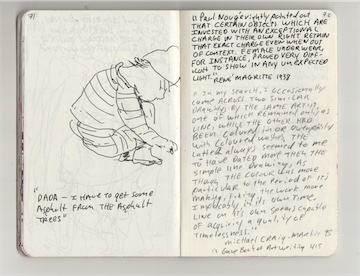 71
"DADA – I HAVE TO GET SOME
ASPHALT FROM THE ASPHALT
TREES"
72
"Paul Nougé rightly pointed out
THAT CERTAIN OBJECTS WHICH ARE
INVESTED WITH AN EXCEPTIONAL
CHARGE IN THEIR OWN RIGHT RETAIN
THAT EXACT CHARGE EVEN WHEN OUT
OF CONTEXT. FEMALE UNDERWEAR,
FOR INSTANCE, PROVED VERY DIFF-
ICULT TO SHOW IN ANY UNEXPECTED
LIGHT" RENÉ MAGRITTE 1938
"In my search, I occasionally
come ACROSS TWO SIMILAR
DRAWINGS BY THE SAME ARTIST,
one of which REMAINED only as
LINE, WHILE THE OTHER HAD
BEEN COLOURED in or
with coloured washes. THE
LATTER always seemed to me
TO HAVE DATED MORE THAN THE
simple line DRAWING. As
THOUGH THE COLOUR WAS more
PARTICULAR TO THE PERIOD of its
making, fixing the work more
implacably in its own TIME.
Line on its own seems capable
of acquiring a quality of
Timelessness."
michael CRAIG-MARTIN 95